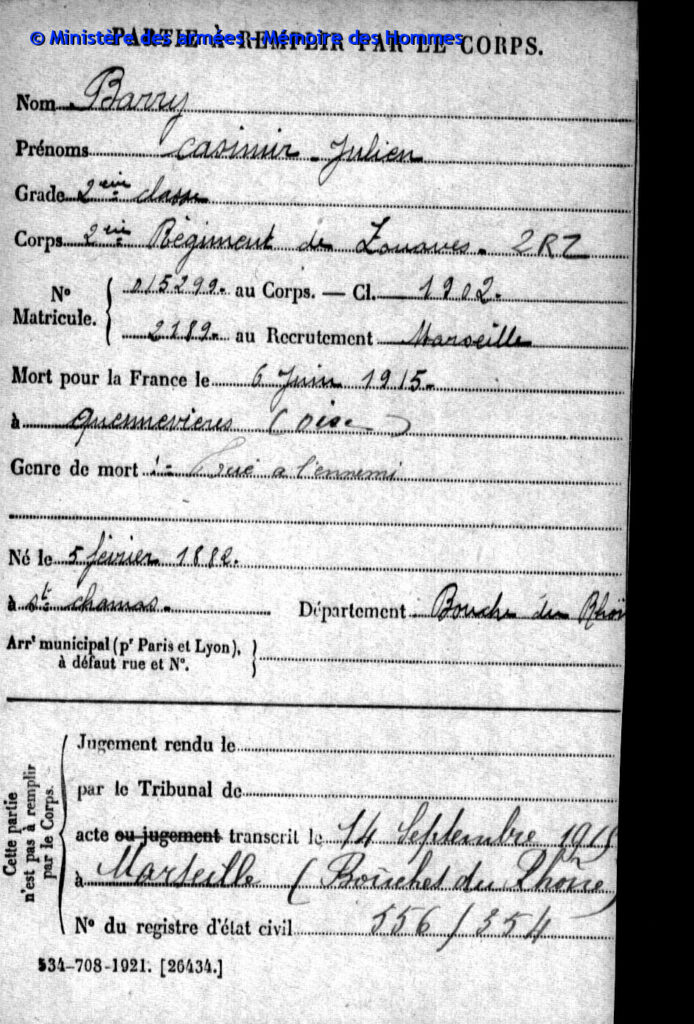 PARTIE À REMPLIR PAR LE CORPS.
© Ministère des armées - Mémoire des Hommes
Nom Barry
Prénoms Casimir Julien
Grade 2eme classe
Corps 2eme Régiment de Zouaves - 2RZ
N° Matricule. { 015299 au Corps. — Cl. 1902.
2189 au Recrutement Marseille
Mort pour la France le 6 Juin 1915
à Quennevieres (Oise)
Genre de mort Tué a l'ennemi
Né le 5 février 1882.
à St chamas. Département Bouche du Rhon
Arrt municipal (pr Paris et Lyon), à défaut rue et N°. }
Cette partie n'est pas à remplir par le Corps.
Jugement rendu le
par le Tribunal de
acte ou jugement transcrit le 14 Septembre 1915
à Marseille (Bouches du Rhône)
N° du registre d'état civil 556/354
534-708-1921. [26434.]